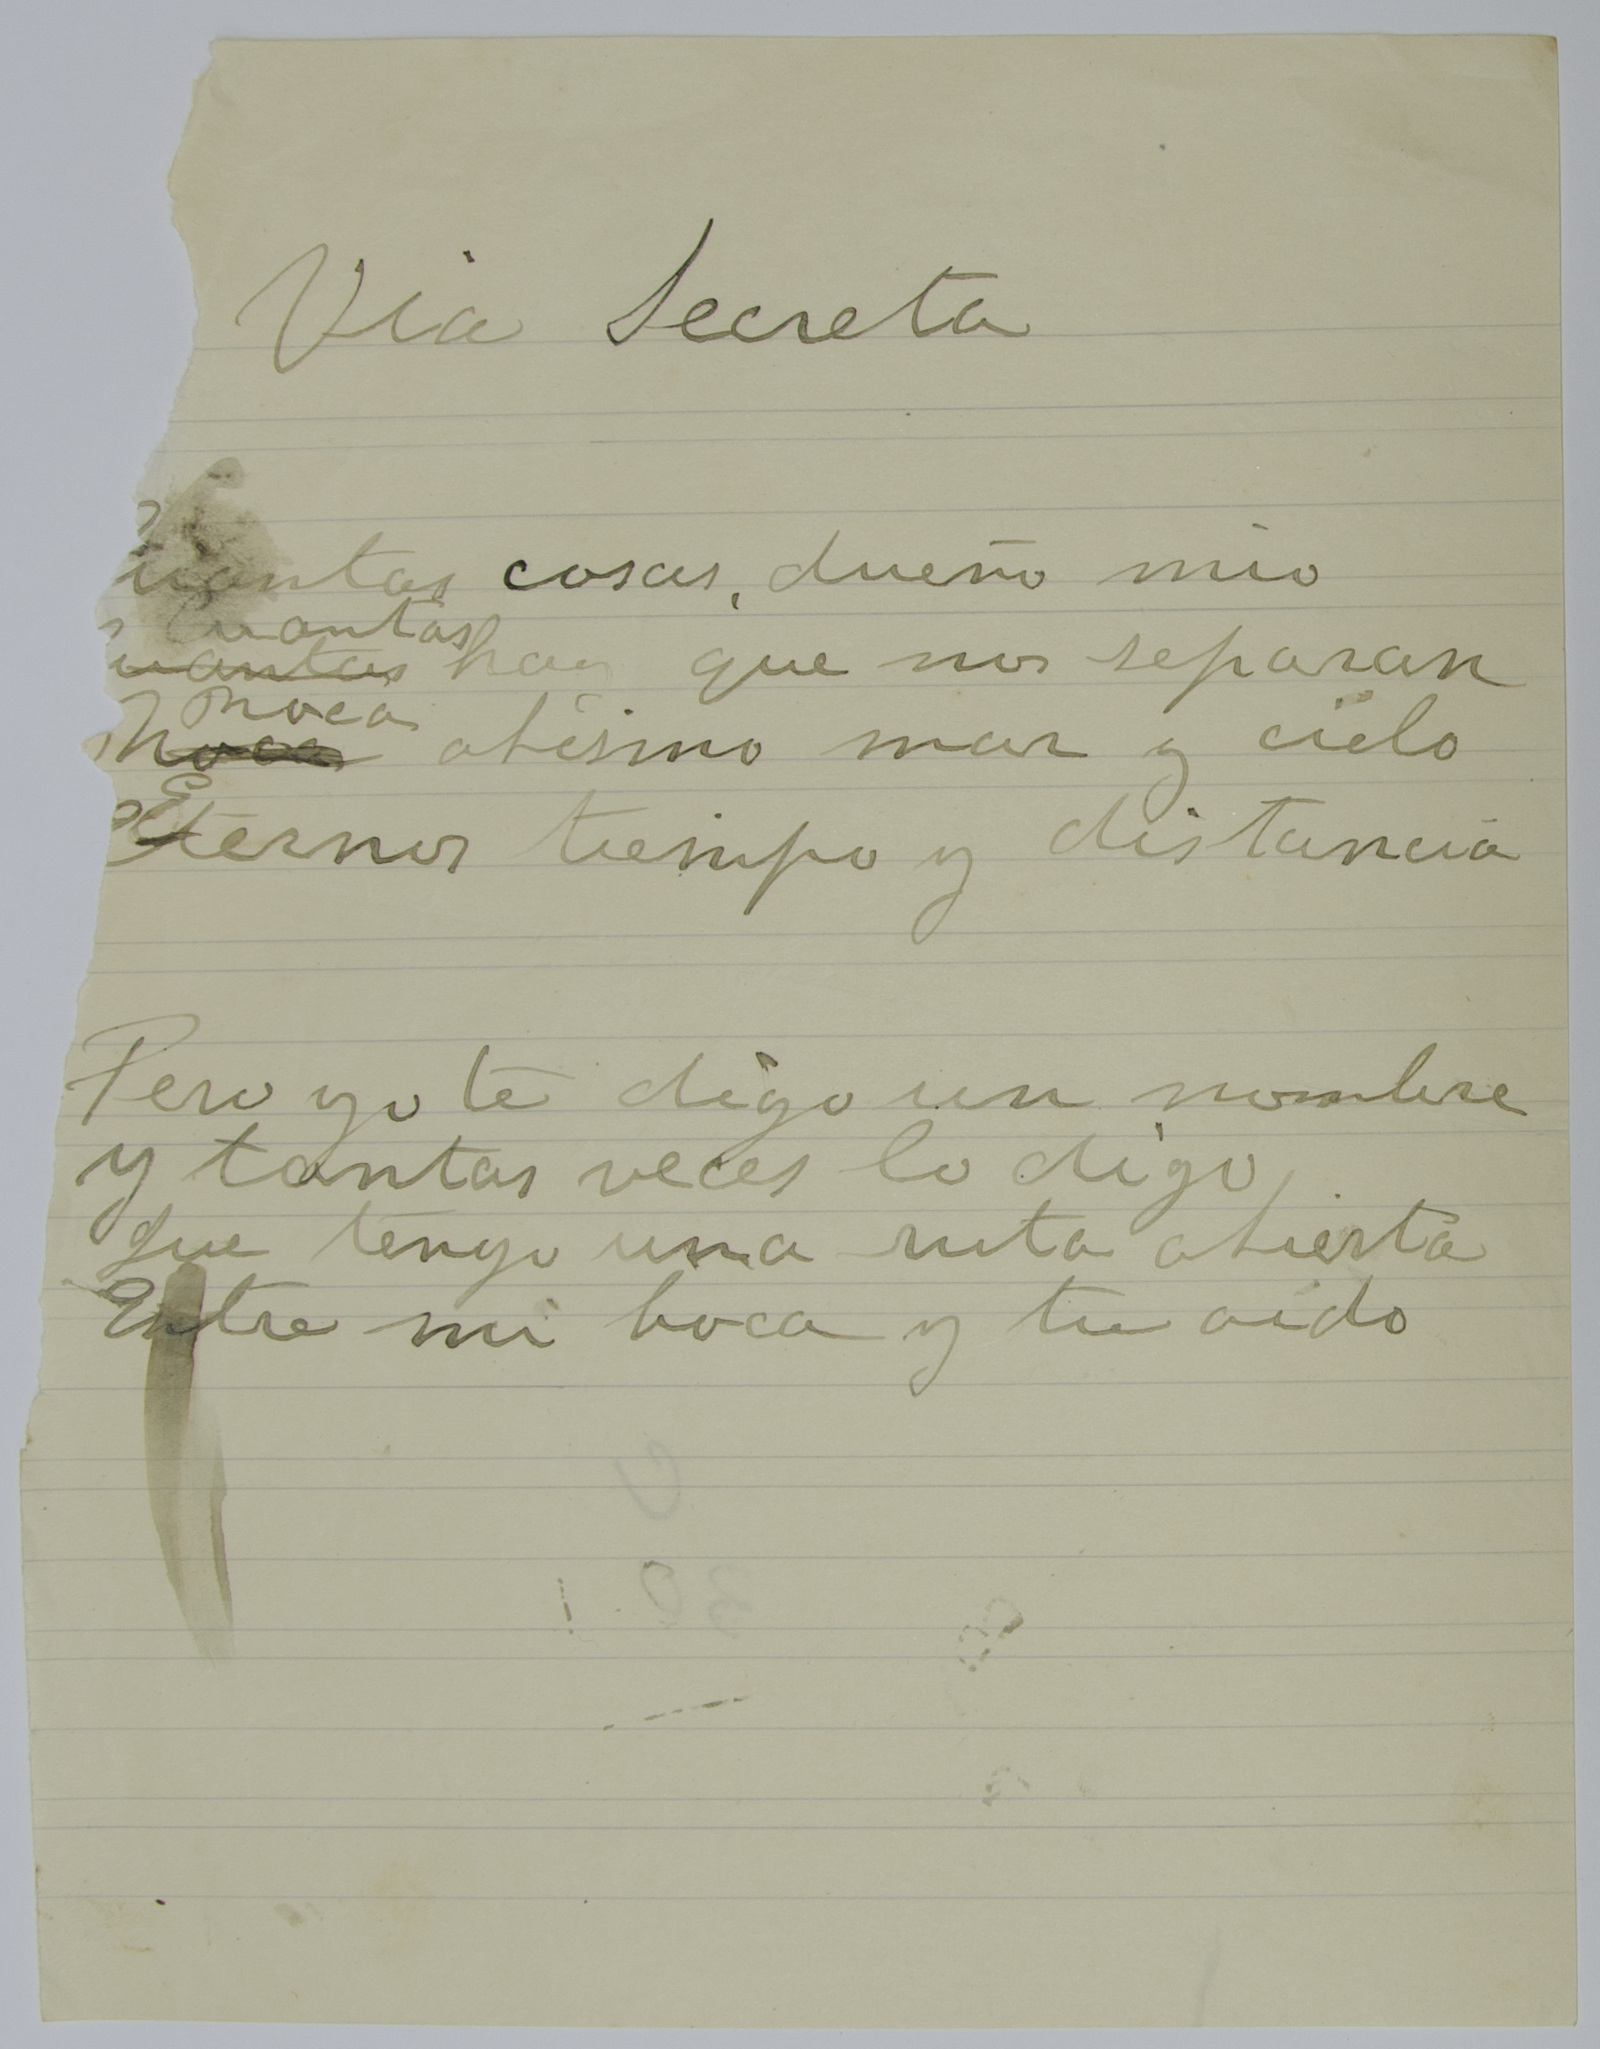 Via Secreta
uantas cosas, dueño mio
Cuantas
uantas hay que nos separan
Roca
Roca abismo mar y cielo
Eternos tiempo y distancia
Pero yo te digo un nombre
y tantas veces lo digo,
que tengo una ruta abierta
Entre mi boca y tu oido